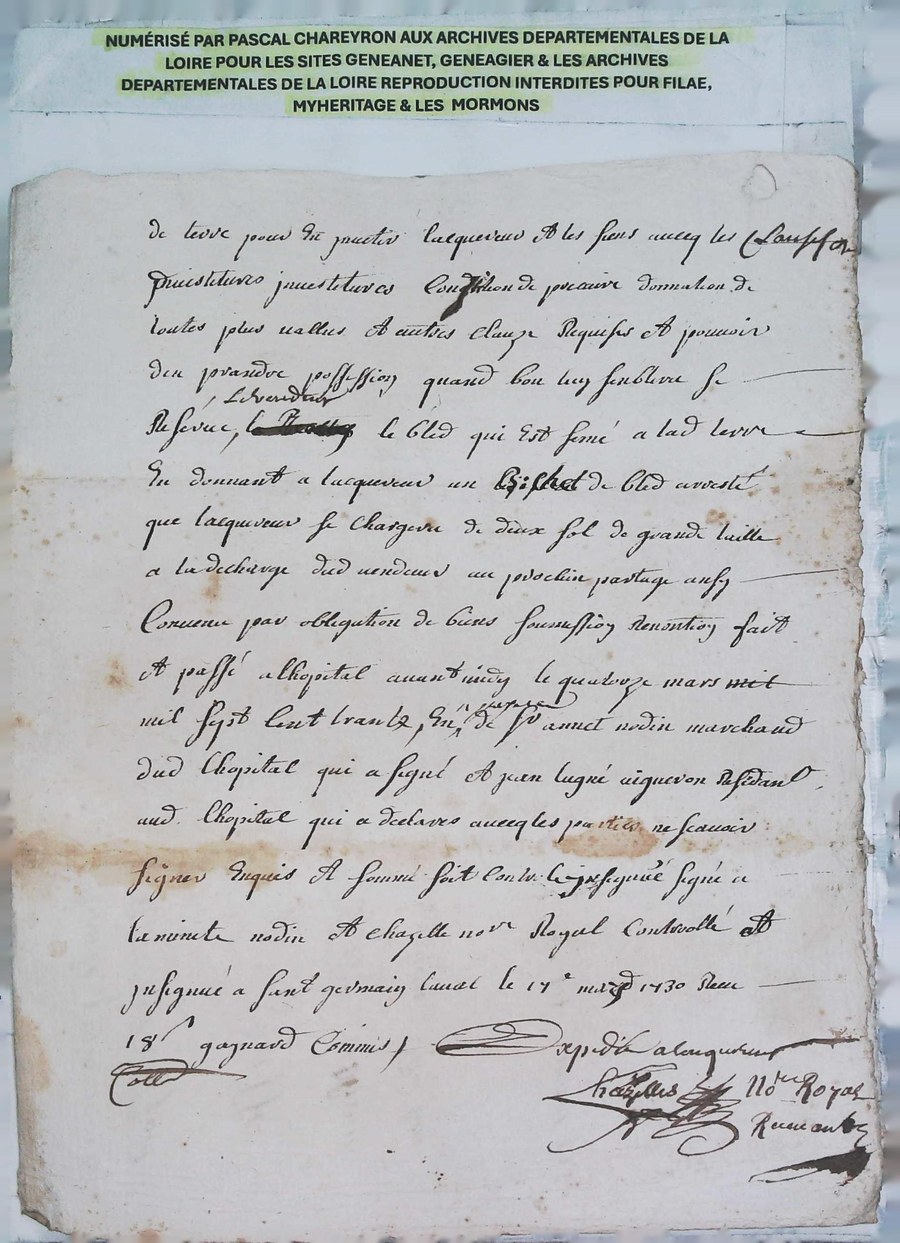 NUMÉRISÉ PAR PASCAL CHAREYRON AUX ARCHIVES DEPARTEMENTALES DE LA
LOIRE POUR LES SITES GENEANET, GENEAGIER & LES ARCHIVES
DEPARTEMENTALES DE LA LOIRE REPRODUCTION INTERDITES POUR FILAE,
MYHERITAGE & LES MORMONS
de terre pour En lacquereur Et les siens avecq les
jnvestitures Condition de precaire donnation de
toutes plus vallus Et autres clauze Requises Et pouvoir
den prandre possession quand bon luy semblera se
Le vendeur
Reserve, le bled qui Est semé a lad terre
En donnant a lacquereur un Bichet de bled arresté
que lacquereur se chargera de deux sol de grande taille
a la decharge dud vendeur au prochin partage ansy
Convenu par obligation de biens soumission Renontion fait
Et passé a lhopital avant midy le quatorze mars mil
mil sept Cent trante, En, de Sr annet nodin marchand
dud lhopital qui a signé Et jean lugné vigneron Residant
aud. lhopital qui a declares avecq les parties ne scavoir
signer Enquis Et sommé soit Contr. jnsignué signé a
la minute nodin Et chazelle nore Royal Controllé Et
jnsignué a saint germain laval le 17e mars 1730 Receu
18s gagnard Commis
Coll Expedié a lacquereur
Chazelles Nore Royal